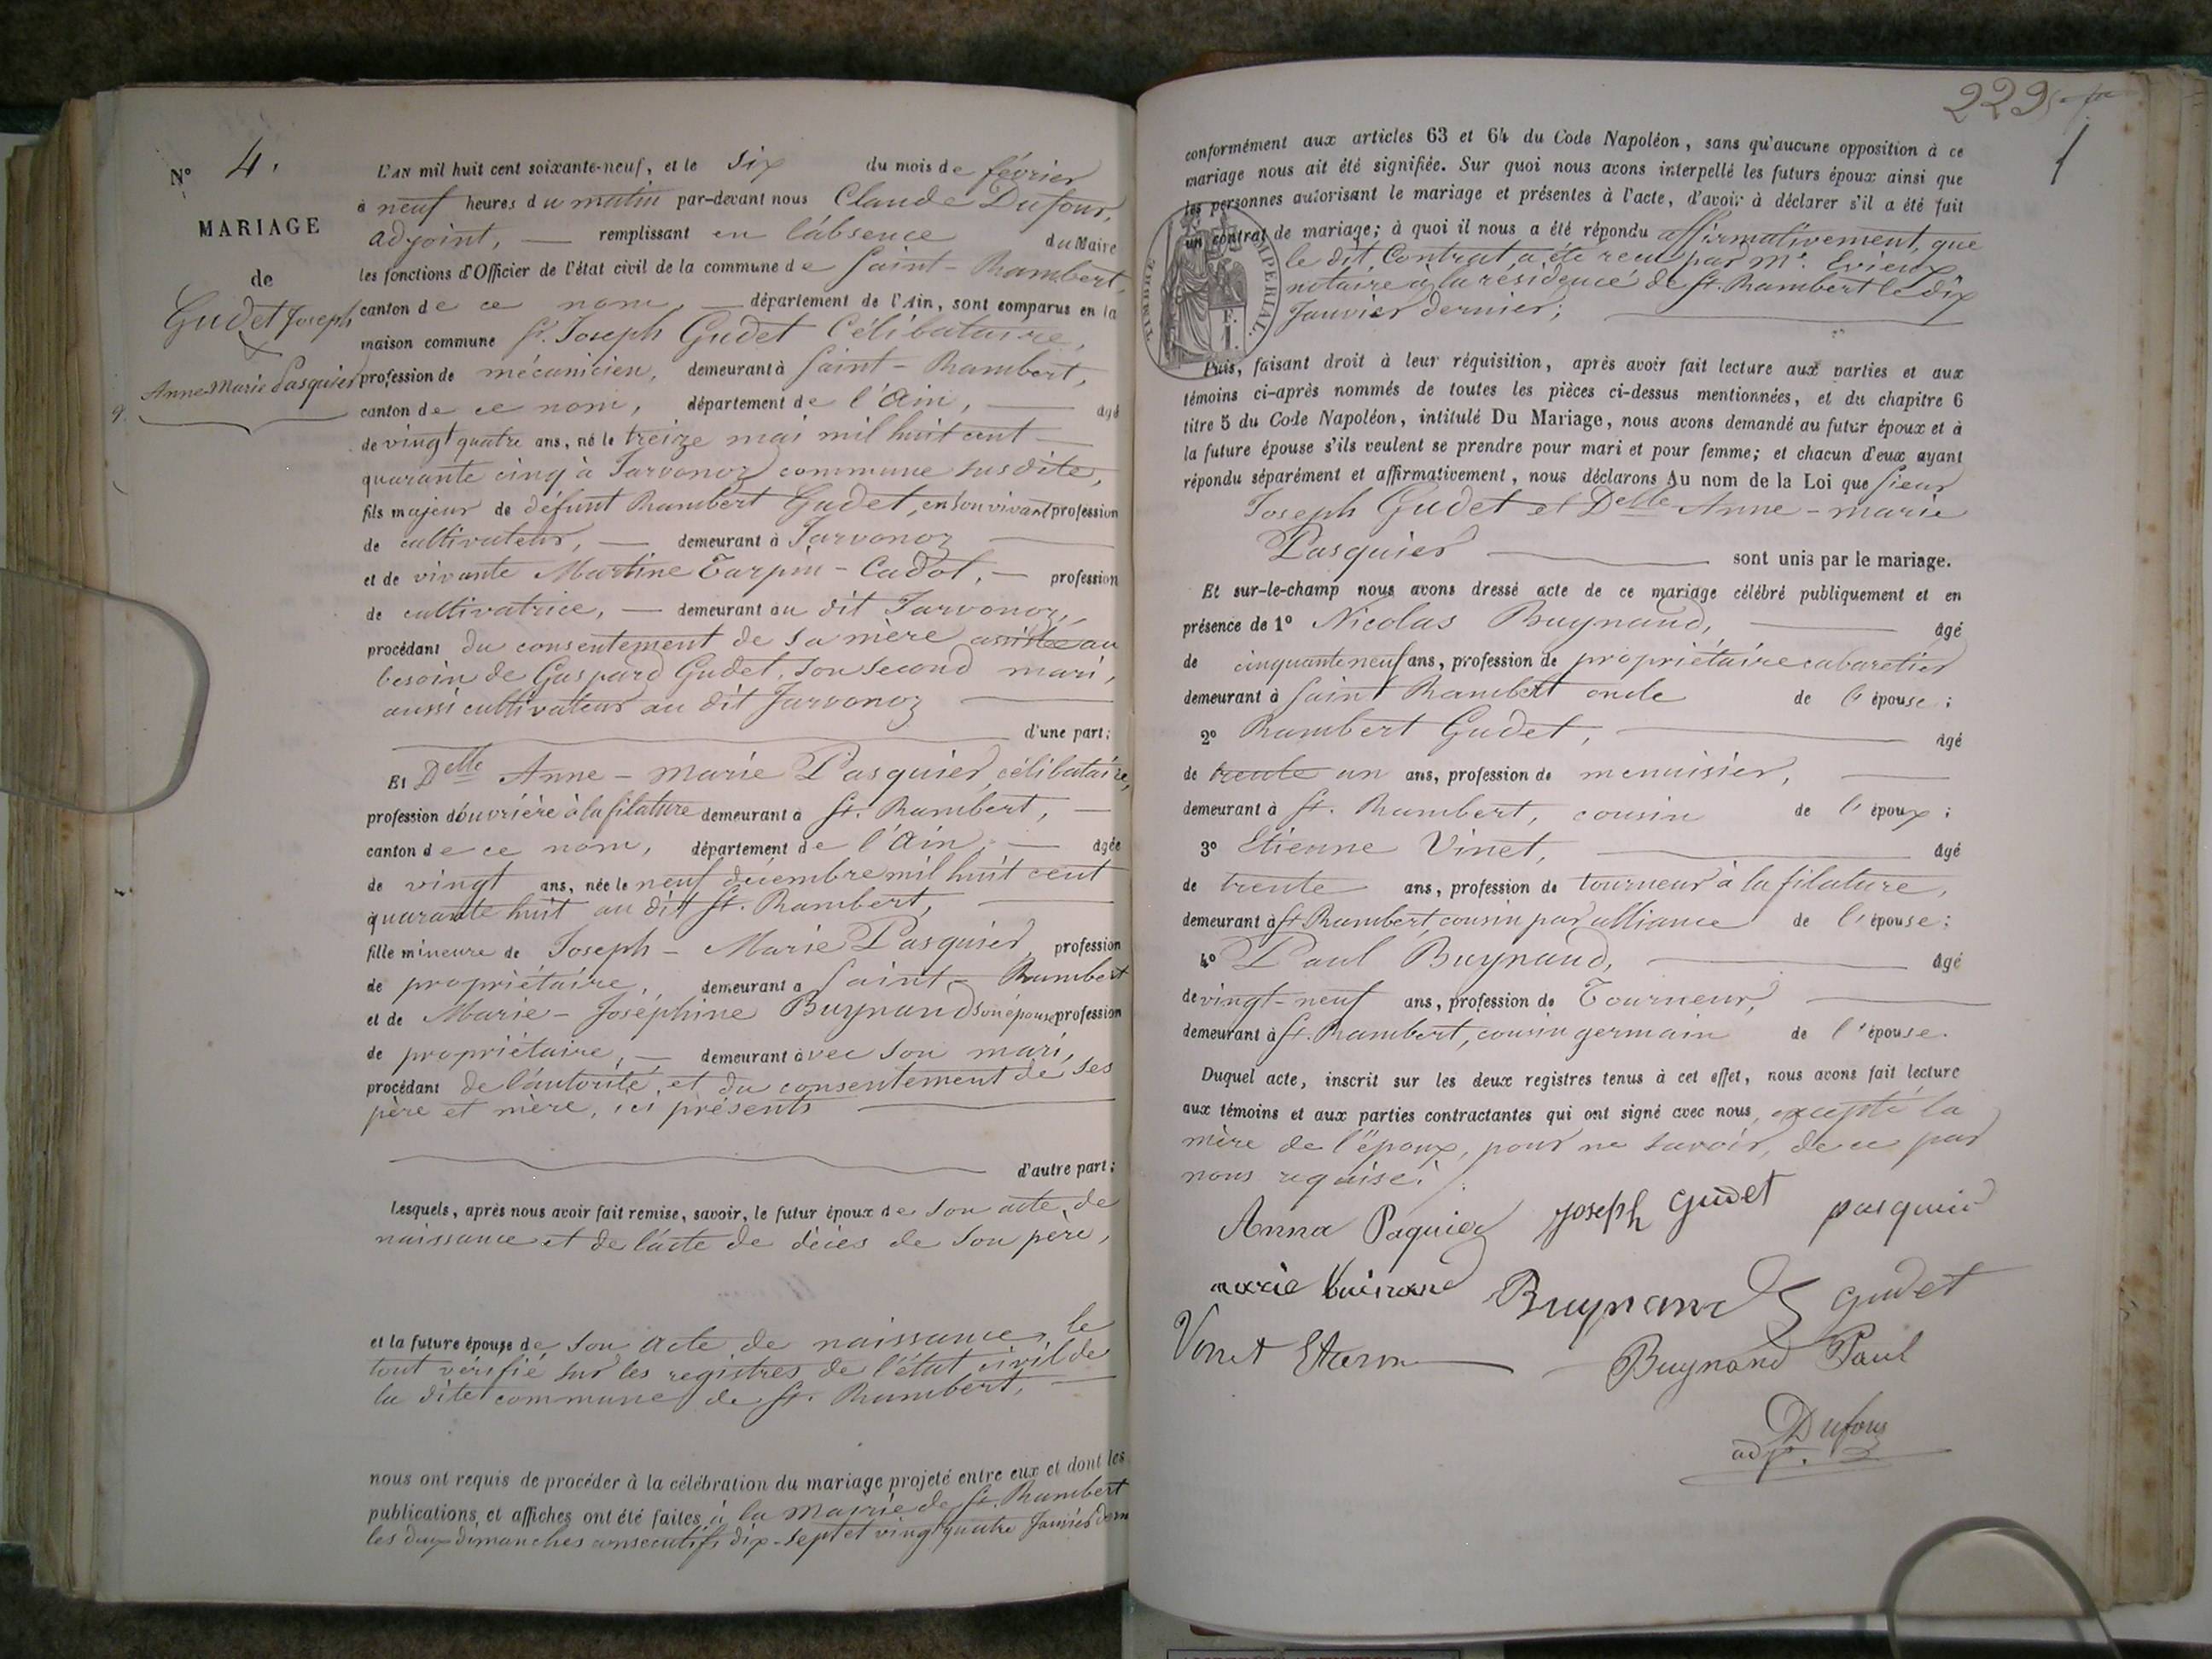 N° 4.
MARIAGE
de
Gudet Joseph
&
Anne-Marie Pasquier
L'AN mil huit cent soixante-neuf, et le six du mois de février
à neuf heures du matin par-devant nous Claude Dufour,
adjoint, remplissant en l'absence du Maire
les fonctions d'Officier de l'état civil de la commune de Saint-Rambert,
canton de ce nom, département de l'Ain, sont comparus en la
maison commune Sr. Joseph Gudet Célibataire,
profession de mécanicien, demeurant à Saint-Rambert,
canton de ce nom, département de l'Ain, âgé
de vingt quatre ans, né le treize mai mil huit cent
quarante cinq à Javonoz commune susdite,
fils majeur de défunt Rambert Gudet, en son vivant profession
de cultivateur, demeurant à Javonoz
et de vivante Martine Tarpin-Cadot, profession
de cultivatrice, demeurant au dit Javonoz,
procédant du consentement de sa mère assistée au
besoin de Gaspard Gudet, son second mari,
aussi cultivateur au dit Javonoz
d'une part;
Et Delle Anne-Marie Pasquier, célibataire,
profession d'ouvrière à la filature demeurant à St. Rambert,
canton de ce nom, département de l'Ain, âgée
de vingt ans, née le neuf décembre mil huit cent
quarante huit au dit St. Rambert,
fille mineure de Joseph-Marie Pasquier, profession
de propriétaire, demeurant à Saint-Rambert
et de Marie-Joséphine Buynand son épouse profession
de propriétaire, demeurant avec son mari,
procédant de l'autorité et du consentement de ses
père et mère, ici présents
d'autre part;
Lesquels, après nous avoir fait remise, savoir, le futur époux de son acte de
naissance et de l'acte de décès de son père,
et la future épouse de son acte de naissance, le
tout vérifié sur les registres de l'état civil de
la dite commune de St. Rambert,
nous ont requis de procéder à la célébration du mariage projeté entre eux et dont les
publications et affiches ont été faites à la Mairie de St. Rambert
les deux dimanches consécutifs dix-sept et vingt quatre Janvier dern
229
conformément aux articles 63 et 64 du Code Napoléon, sans qu'aucune opposition à ce
mariage nous ait été signifiée. Sur quoi nous avons interpellé les futurs époux ainsi que
les personnes autorisant le mariage et présentes à l'acte, d'avoir à déclarer s'il a été fait
un contrat de mariage; à quoi il nous a été répondu affirmativement, que
le dit Contrat a été reçu par Me. Evieux
notaire à la résidence de St. Rambert le dix
Janvier dernier;
TIMBRE IMPERIAL
Puis, faisant droit à leur réquisition, après avoir fait lecture aux parties et aux
témoins ci-après nommés de toutes les pièces ci-dessus mentionnées, et du chapitre 6
titre 5 du Code Napoléon, intitulé Du Mariage, nous avons demandé au futur époux et à
la future épouse s'ils veulent se prendre pour mari et pour femme; et chacun d'eux ayant
répondu séparément et affirmativement, nous déclarons Au nom de la Loi que Sieur
Joseph Gudet et Delle Anne-marie
Pasquier sont unis par le mariage.
Et sur-le-champ nous avons dressé acte de ce mariage célébré publiquement et en
présence de 1° Nicolas Buynand, âgé
de cinquante neuf ans, profession de propriétaire cabaretier
demeurant à Saint Rambert oncle de l'épouse;
2° Rambert Gudet, âgé
de trente un ans, profession de menuisier,
demeurant à St. Rambert, cousin de l'époux;
3° Etienne Vinet, âgé
de trente ans, profession de tourneur à la filature,
demeurant à St. Rambert, cousin par alliance de l'épouse;
4° Paul Buynand, âgé
de vingt-neuf ans, profession de Tourneur,
demeurant à St. Rambert, cousin germain de l'épouse.
Duquel acte, inscrit sur les deux registres tenus à cet effet, nous avons fait lecture
aux témoins et aux parties contractantes qui ont signé avec nous, excepté la
mère de l'époux, pour ne savoir, de ce par
nous requise.
Anna Paquier Joseph Gudet pasquier
marie buinand Buynand Gudet
Vinet Buynand Paul
Dufour
adj.